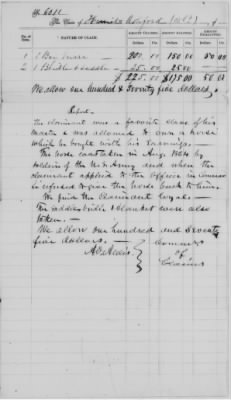 No. 6611
The Claim of Hanford
No. of Item. NATURE OF CLAIM. AMOUNT CLAIMED. AMOUNT ALLOWED. AMOUNT DISALLOWED.
Dollars. Cts. Dollars. Cts. Dollars. Cts.
1 1 Bay mare 200 00 150 00 50 00
2 1 Bridle & saddle 25 00 25 00
$ 225 00 $175 00 50 00
We allow one hundred & seventy five dollars
Report
The claimant was a favorite slave of his
master & was allowed to own a horse
which he bought with his earnings.
The horse was taken in Aug. 1864 by
soldiers of the U.S. Army and when the
claimant applied to the officer in command
he refused to give the horse back to him.
We find the claimant loyal
The saddle bridle & blanket were also
taken.
We allow one hundred and seventy
five dollars.
A. O. Aldis
Commrs
of
Claims